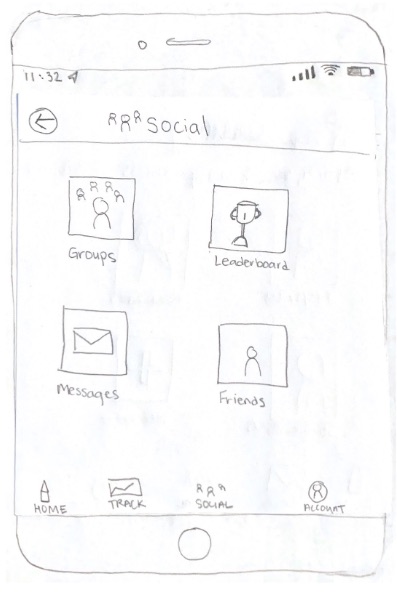 11:32
Social
Groups
Leaderboard
Messages
Friends
HOME
TRACK
SOCIAL
ACCOUNT